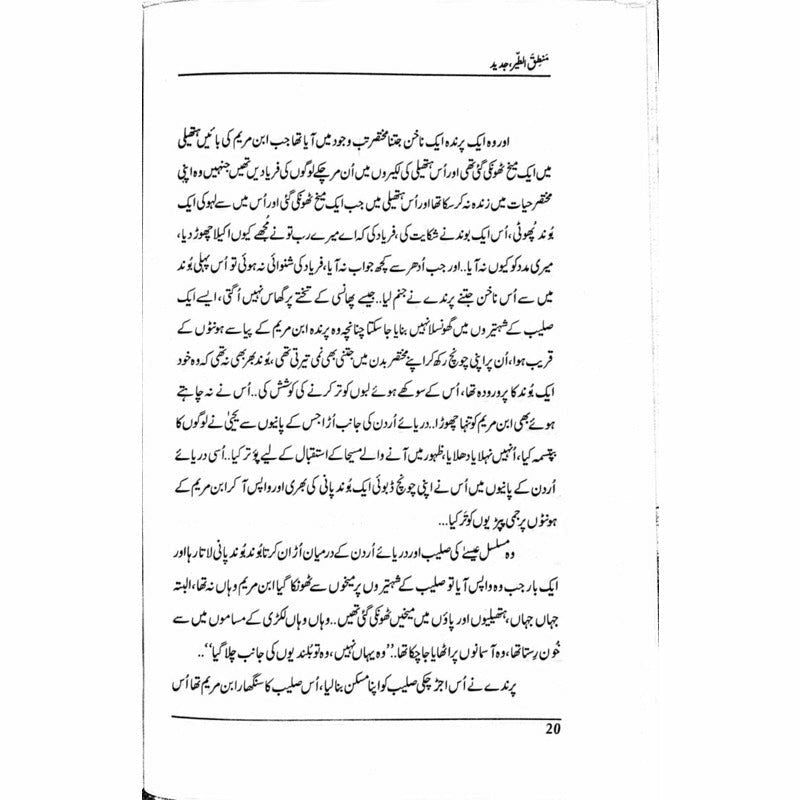 منطق الطیر، جدید
اور وہ ایک پرندہ ایک ناخن جتنا مختصر تب وجود میں آیا تھا جب ابن مریم کی بائیں ہتھیلی
میں ایک میخ ٹھونکی گئی تھی اور اُس ہتھیلی کی لکیروں میں اُن مر چکے لوگوں کی فریادیں تھیں جنہیں وہ اپنی
مختصر حیات میں زندہ نہ کر سکا تھا اور اُس ہتھیلی میں جب ایک میخ ٹھونکی گئی اور اُس میں سے لہو کی ایک
بُوند پُھوٹی، اُس ایک بوند نے شکایت کی، فریاد کی کہ اے میرے رب تو نے مُجھے کیوں اکیلا چھوڑ دیا،
میری مدد کو کیوں نہ آیا.. اور جب اُدھر سے کچھ جواب نہ آیا، فریاد کی شنوائی نہ ہوئی تو اُس پہلی بُوند
میں سے اُس ناخن جتنے پرندے نے جنم لیا.. جیسے پھانسی کے تختے پر گھاس نہیں اُگتی، ایسے ایک
صلیب کے شہتیروں میں گھونسلا نہیں بنایا جا سکتا چنانچہ وہ پرندہ ابن مریم کے پیاسے ہونٹوں کے
قریب ہوا، اُن پر اپنی چونچ رکھ کر اپنے مختصر بدن میں جتنی بھی نمی تیرتی تھی، بُوند بھر بھی نہ تھی کہ وہ خود
ایک بُوند کا پروردہ تھا، اُس کے سوکھے ہوئے لبوں کو تر کرنے کی کوشش کی.. اُس نے نہ چاہتے
ہوئے بھی ابن مریم کو تنہا چھوڑا.. دریائے اُردن کی جانب اُڑا جس کے پانیوں سے یحییٰ نے لوگوں کا
بپتسمہ کیا، اُنہیں نہلایا دھلایا، ظہور میں آنے والے مسیحا کے استقبال کے لیے پوّتر کیا.. اُسی دریائے
اُردن کے پانیوں میں اُس نے اپنی چونچ ڈبوئی ایک بُوند پانی کی بھری اور واپس آ کر ابن مریم کے
ہونٹوں پر جمی پپڑیوں کو تَر کیا...
وہ مسلسل عیسےٰ کی صلیب اور دریائے اُردن کے درمیان اُڑان کرتا بُوند بُوند پانی لاتا رہا اور
ایک بار جب وہ واپس آیا تو صلیب کے شہتیروں پر میخوں سے ٹھونکا گیا ابن مریم وہاں نہ تھا، البتہ
جہاں جہاں، ہتھیلیوں اور پاؤں میں میخیں ٹھونکی گئی تھیں.. وہاں وہاں لکڑی کے مساموں میں سے
خُون رِستا تھا، وہ آسمانوں پر اٹھایا جا چکا تھا.. ’’وہ یہاں نہیں، وہ تو بُلندیوں کی جانب چلا گیا‘‘..
پرندے نے اُس اجڑ چکی صلیب کو اپنا مسکن بنا لیا، اُس صلیب کا سنگھار ابن مریم تھا اُس
20